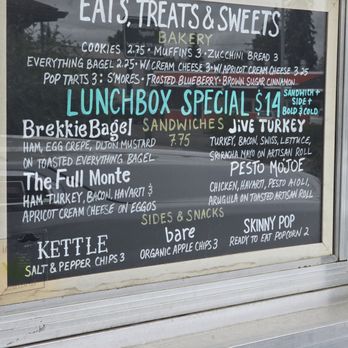 EATS, TREATS & SWEETS
BAKERY
COOKIES 2.75 • MUFFINS 3 • ZUCCHINI BREAD 3
EVERYTHING BAGEL 2.75 • W/CREAM CHEESE 3 • W/APRICOT CREAM CHEESE 3.25
POP TARTS 3 : S'MORES • FROSTED BLUEBERRY • BROWN SUGAR CINNAMON
LUNCHBOX SPECIAL $14 SANDWICH + SIDE + BOLD 3 COLD
SANDWICHES 7.75
BrekkieBagel
HAM, EGG CREPE, DIJON MUSTARD
ON TOASTED EVERYTHING BAGEL
The Full Monte
HAM, TURKEY, BACON, HAVARTI &
APRICOT CREAM CHEESE ON EGGOS
JIVE TURKEY
TURKEY, BACON, SWISS, LETTUCE,
SRIRACHA MAYO ON ARTISAN ROLL
PESTO MOJOE
CHICKEN, HAVARTI, PESTO AIOLI,
ARUGULA ON TOASTED ARTISAN ROLL
SIDES & SNACKS
KETTLE
SALT & PEPPER CHIPS 3
bare
ORGANIC APPLE CHIPS 3
SKINNY POP
READY TO EAT POPCORN 2